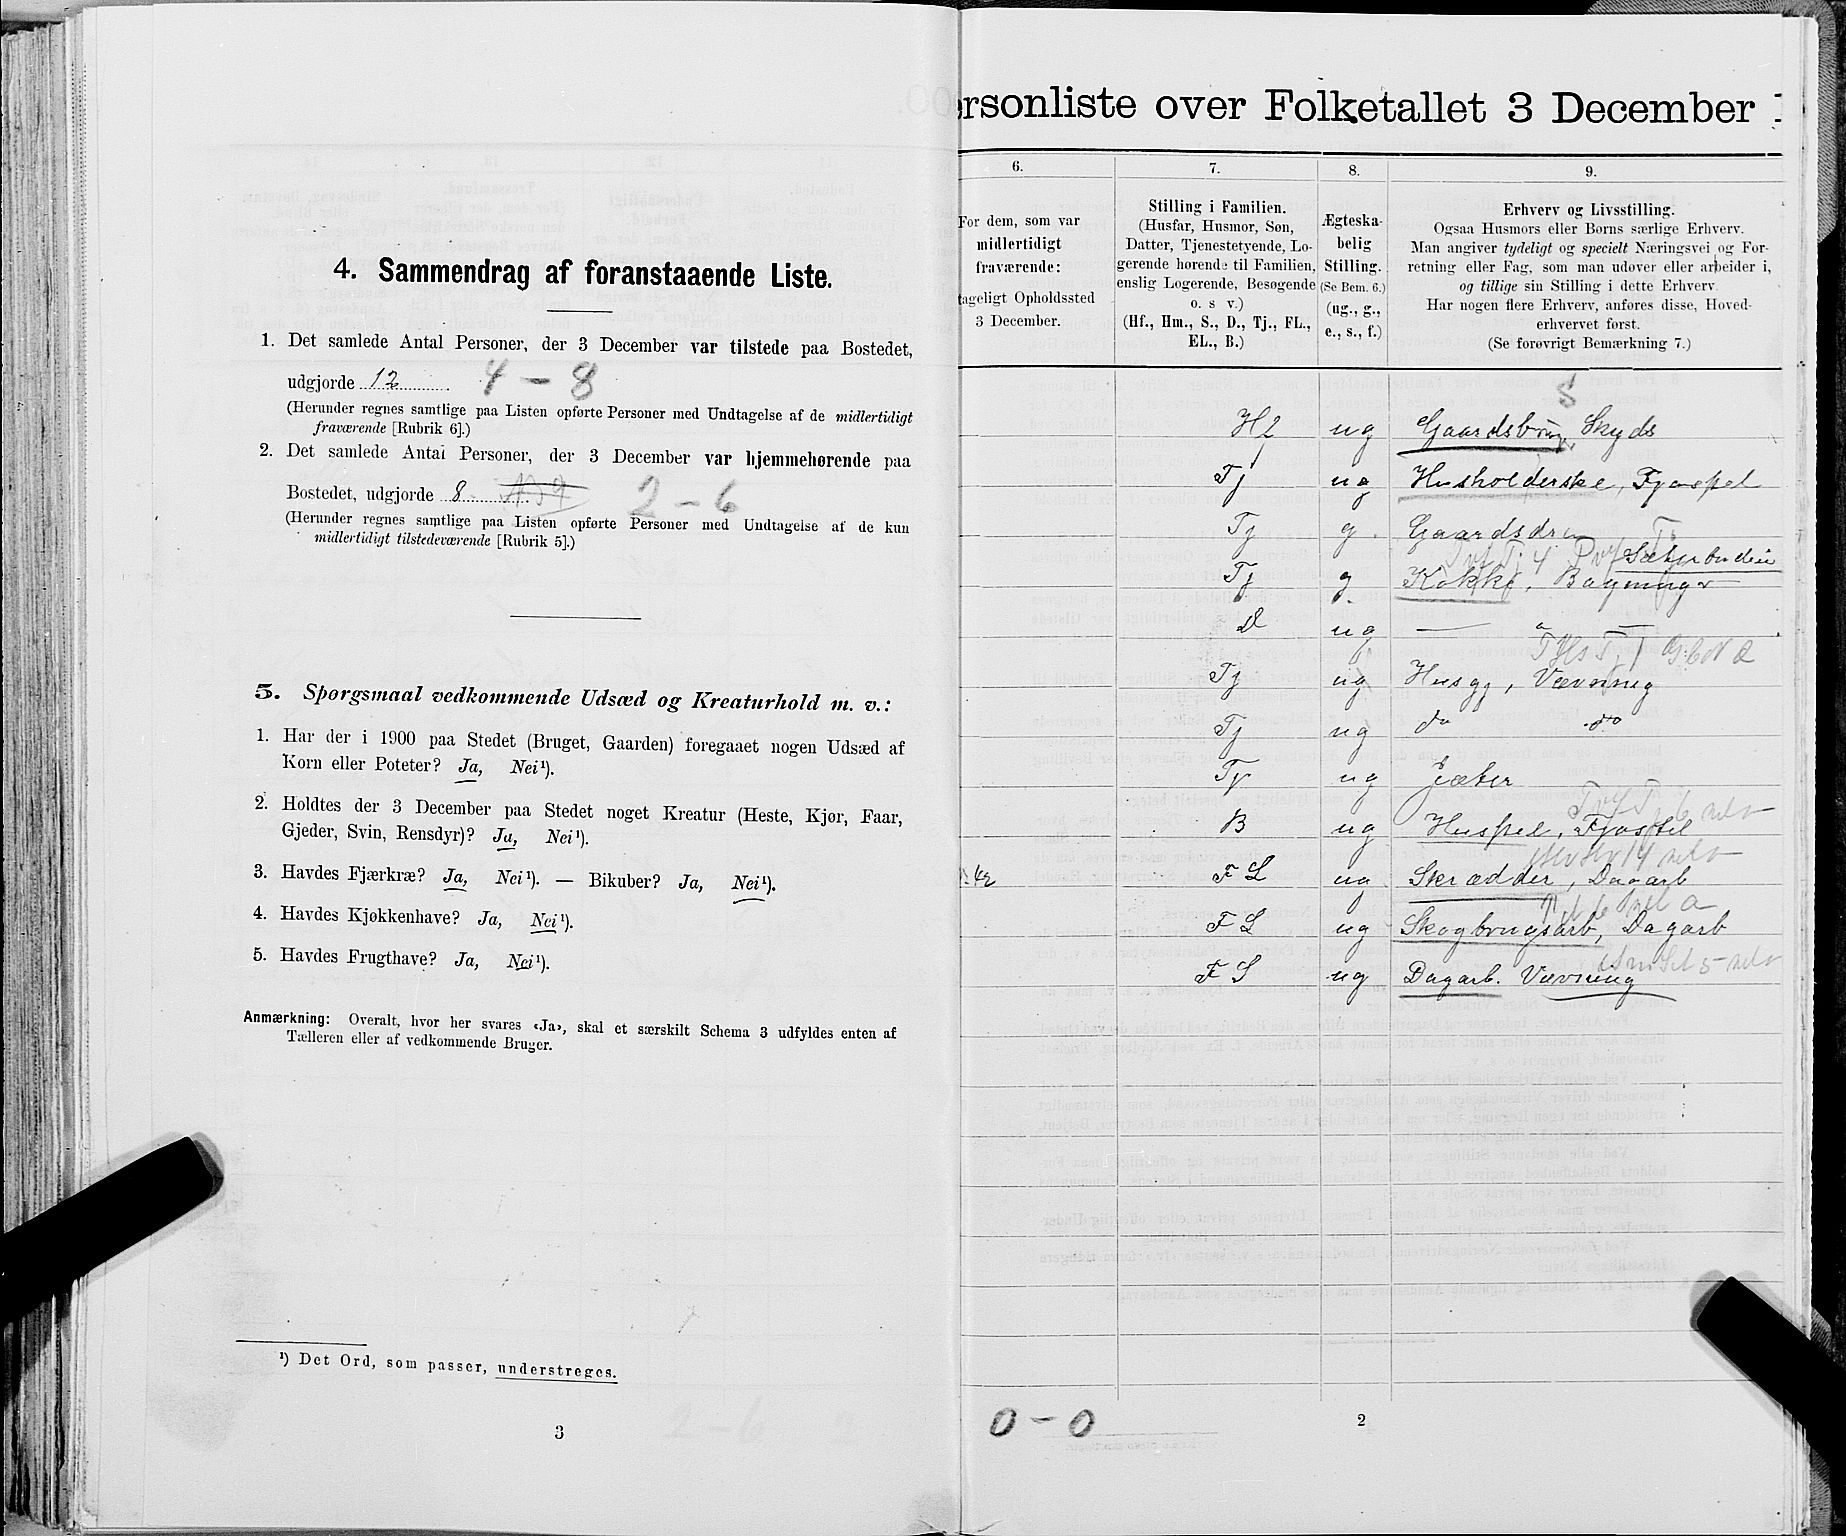 4. Sammendrag af foranstaaende Liste.
1. Det samlede Antal Personer, der 3 December var tilstede paa Bostedet,
udgjorde 12 4 – 8
(Herunder regnes samtlige paa Listen opførte Personer med Undtagelse af de midlertidigt
fraværende [Rubrik 6].)
2. Det samlede Antal Personer, der 3 December var hjemmehørende paa
Bostedet, udgjorde 8 2 – 6
(Herunder regnes samtlige paa Listen opførte Personer med Undtagelse af de kun
midlertidigt tilstedeværende [Rubrik 5].)
5. Spørgsmaal vedkommende Udsæd og Kreaturhold m. v.:
1. Har der i 1900 paa Stedet (Bruget, Gaarden) foregaaet nogen Udsæd af
Korn eller Poteter? Ja, Nei¹).
2. Holdtes der 3 December paa Stedet noget Kreatur (Heste, Kjør, Faar,
Gjeder, Svin, Rensdyr)? Ja, Nei¹).
3. Havdes Fjærkræ? Ja, Nei¹). — Bikuber? Ja, Nei¹).
4. Havdes Kjøkkenhave? Ja, Nei¹).
5. Havdes Frugthave? Ja, Nei¹).
Anmærkning: Overalt, hvor her svares «Ja», skal et særskilt Schema 3 udfyldes enten af
Tælleren eller af vedkommende Bruger.
¹) Det Ord, som passer, understreges.
3
ersonliste over Folketallet 3 December
6.
For dem, som var
midlertidigt
fraværende:
tageligt Opholdssted
3 December.
7.
Stilling i Familien.
(Husfar, Husmor, Søn,
Datter, Tjenestetyende, Lo-
gerende hørende til Familien,
enslig Logerende, Besøgende
o. s v.)
(Hf., Hm., S., D., Tj., FL.,
EL., B.)
8.
Ægteska-
belig
Stilling.
(Se Bem. 6.)
(ug., g.,
e., s., f.)
9.
Erhverv og Livsstilling.
Ogsaa Husmors eller Børns særlige Erhverv.
Man angiver tydeligt og specielt Næringsvei og For-
retning eller Fag, som man udøver eller arbeider i,
og tillige sin Stilling i dette Erhverv.
Har nogen flere Erhverv, anføres disse, Hoved-
erhvervet først.
(Se forøvrigt Bemærkning 7.)
S
ug Gaardsbrug, Skyds
Tj ug Husholderske, Fjøsstel
Tj g Gaardsdr
Sæterbudeie
Tj g Kokke, Bagning
D ug
Tj ug Husgj, Vævning
Tj ug do do
Tj ug Gjæter
B ug Husstel, Fjøsstel
FL ug Skrædder, Dagarb
FL ug Skogbrugsarb, Dagarb
FL ug Dagarb. Vævning
0 – 0
2